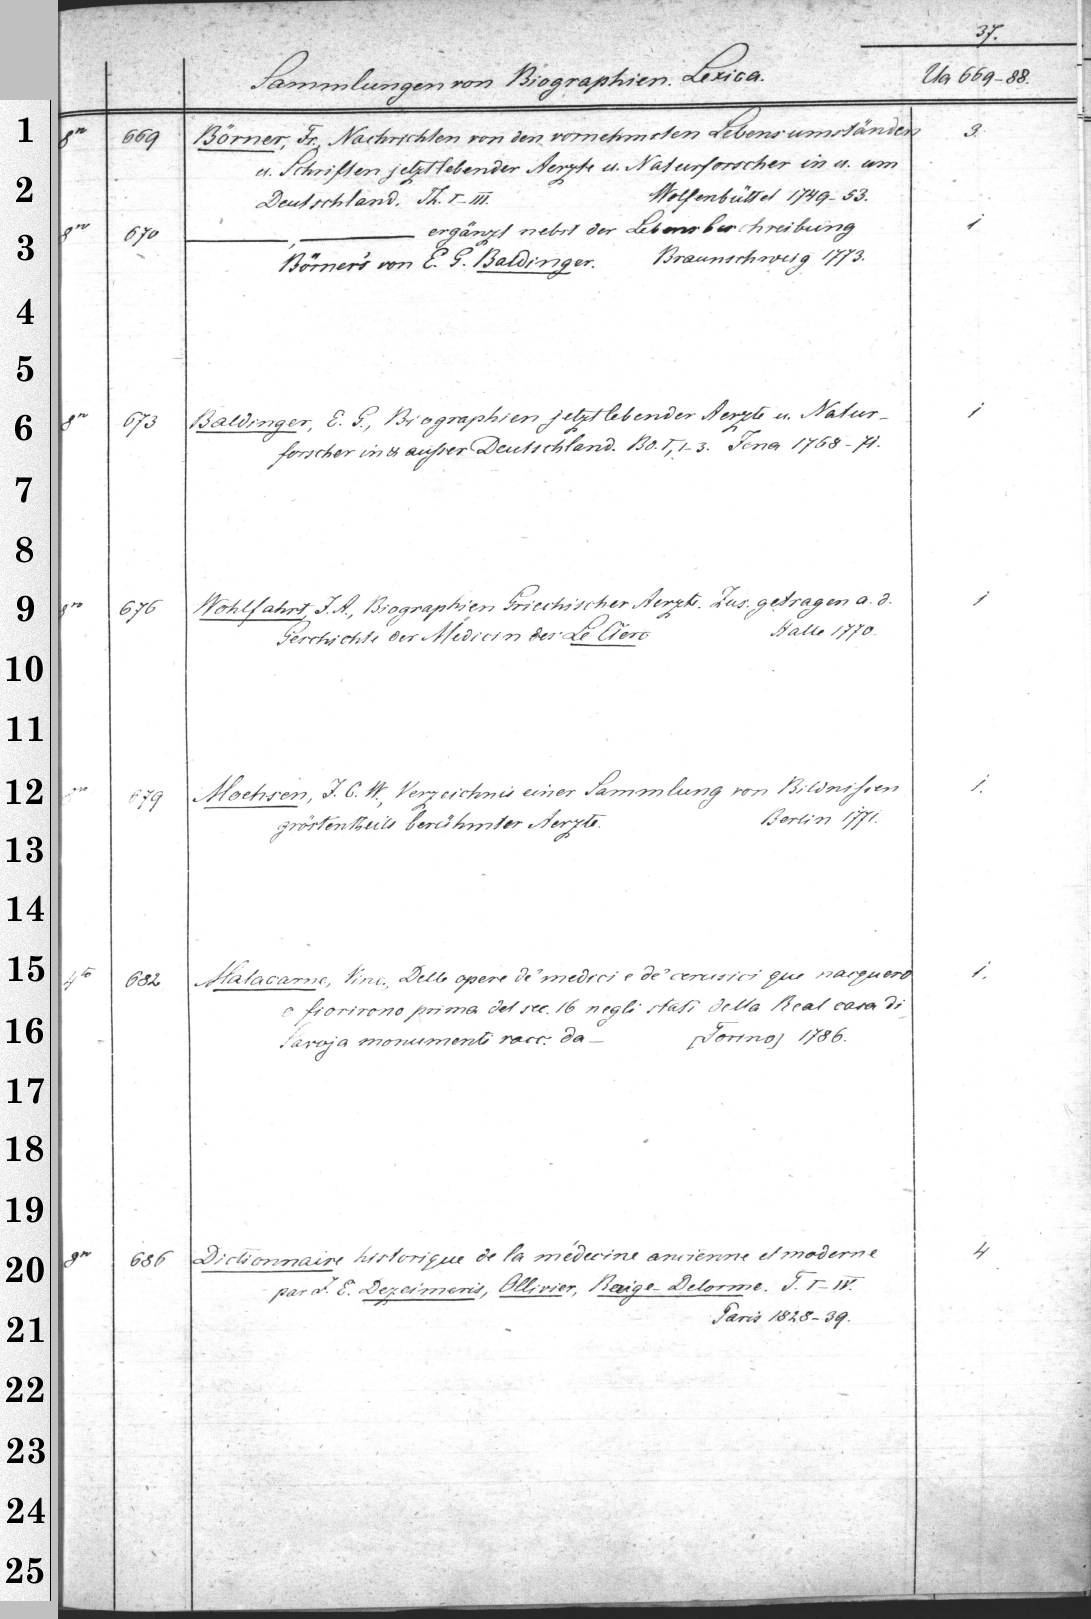 37.
Sammlungen von Biographien. Lexica. Ua 669-88.
1
8º 669 Börner, Fr., Nachrichten von den vornehmsten Lebensumständen 3.
u. Schriften jetztlebender Aerzte u. Naturforscher in u. um
2
Deutschland. Th. I-III. Wolfenbüttel 1749-53.
8º 670 ———, ——— ergänzt nebst der Lebensbeschreibung 1
3
Börner's von E. G. Baldinger. Braunschweig 1773.
4
5
8º 673 Baldinger, E. G., Biographien jetztlebender Aerzte u. Natur- 1
6
forscher in & ausser Deutschland. Bd. I, 1-3. Jena 1768-71.
7
8
8º 676 Wohlfahrt, J. A., Biographien Griechischer Aerzte. Zus. getragen a. d. 1
9
Geschichte der Medicin des Le Clerc Halle 1770.
10
11
8º 679 Moehsen, J. C. W., Verzeichnis einer Sammlung von Bildnissen 1.
12
gröstentheils berühmter Aerzte. Berlin 1771.
13
14
15
4to 682 Malacarne, Vinc., Delle opere de' medici e de' cerusici que nacquero 1.
o fiorirono prima del sec. 16 negli stati della Real casa di
16
Savoja monumenti racc. da — [Torino] 1786.
17
18
19
8º 686 Dictionnaire historique de la médecine ancienne et moderne 4
20
par J. E. Dezeimeris, Ollivier, Raige-Delorme. T. I-IV.
21
Paris 1828-39.
22
23
24
25